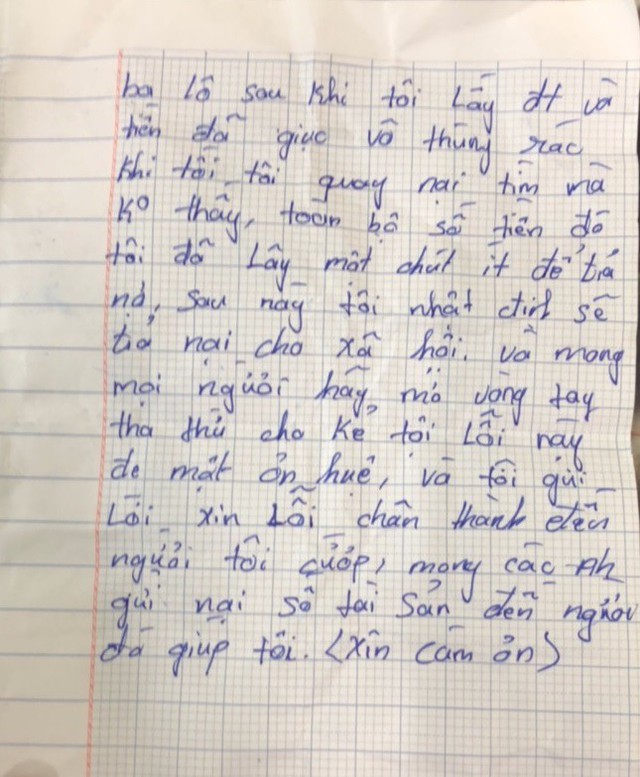 ba lô sau khi tôi Lấy đt và
tiền đã giục vô thùng rác
khi tôi tôi quay nại tìm mà
Ko thấy, toàn bộ số tiền đó
tôi đã Lấy một chút ít để tiả
nợ, sau này tôi nhất định sẽ
tiả nại cho xã hội. và mong
mọi người hãy mở vòng tay
tha thứ cho kẻ tội Lỗi này
de mắt ơn huệ, và tôi gửi
Lời xin Lỗi chân thành đến
người tôi cướp, mong các Ah
gửi nại số tài sản đến người
đã giúp tôi. <Xin cảm ơn>